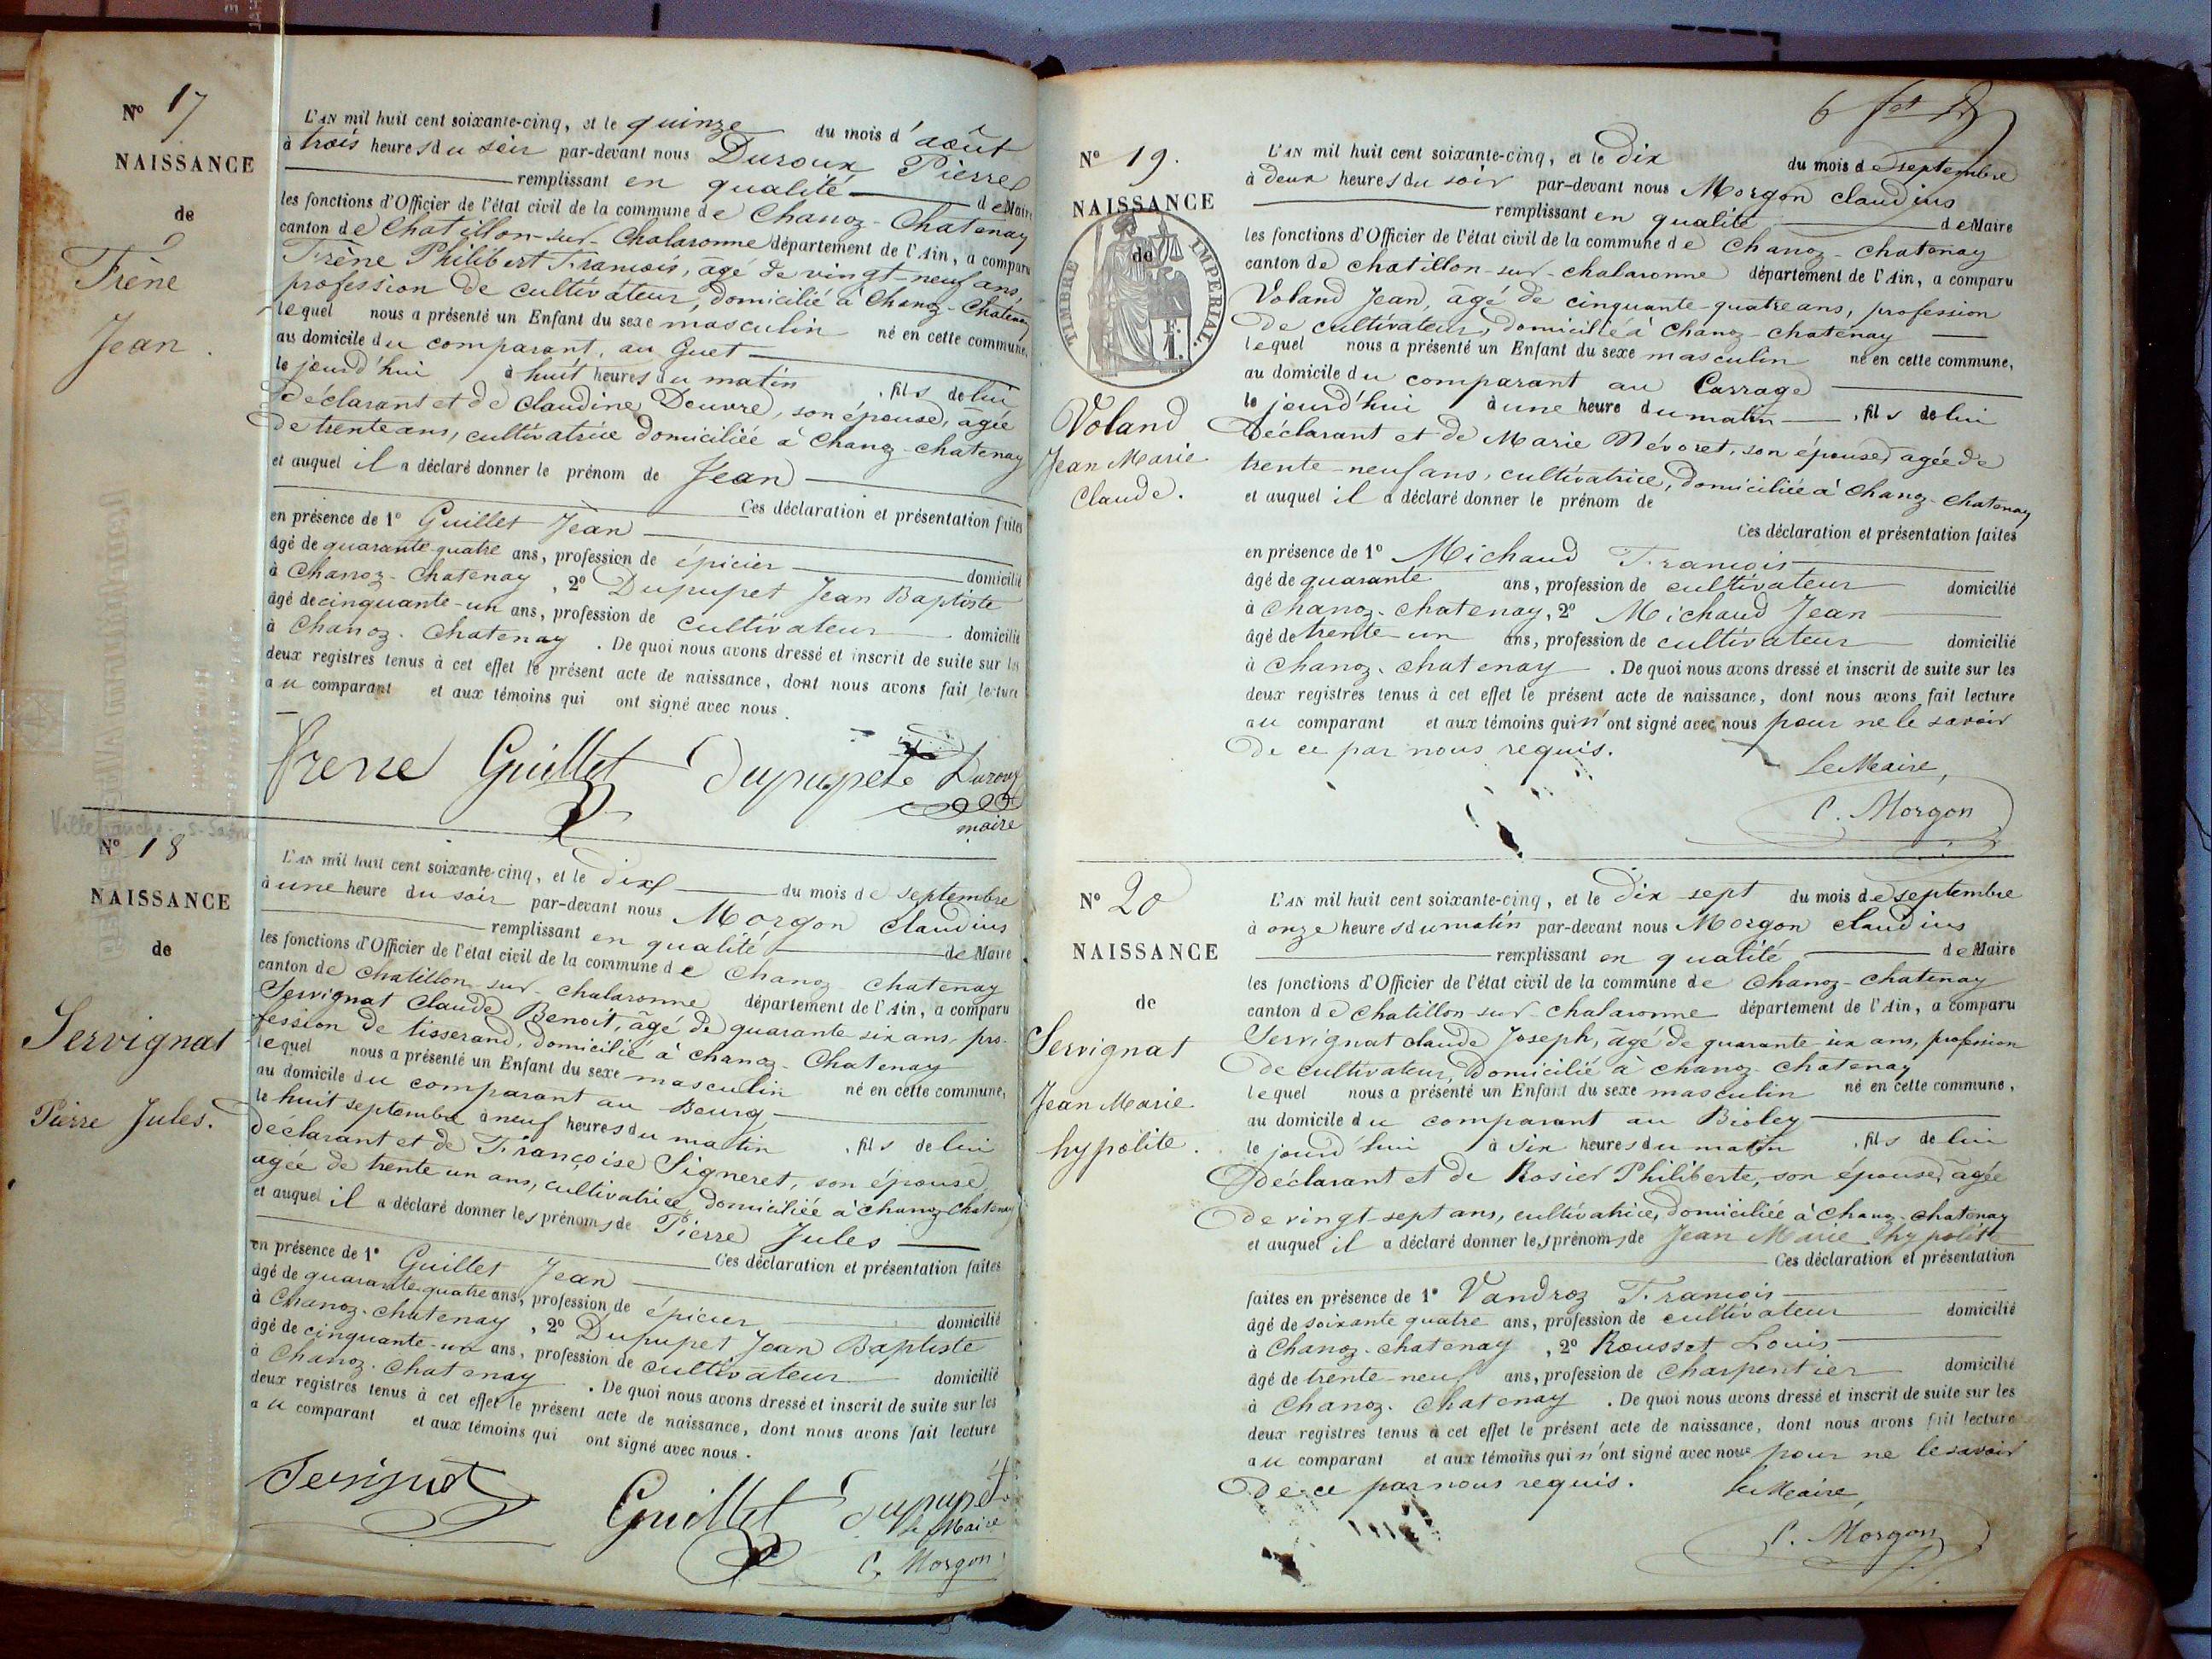 N° 17
NAISSANCE
de
Frène
Jean.
L'AN mil huit cent soixante-cinq, et le quinze du mois d'août
à trois heures du soir par-devant nous Duroux Pierre
remplissant en qualité de Maire
les fonctions d'Officier de l'état civil de la commune de Chanoz-Chatenay
canton de Chatillon-sur-Chalaronne département de l'Ain, a comparu
Frène Philibert François, âgé de vingt-neuf ans,
profession de cultivateur, domicilié à Chanoz-Chatenay
lequel nous a présenté un Enfant du sexe masculin né en cette commune,
au domicile du comparant, au Guet
le jourd'hui à huit heures du matin, fils de lui
déclarant et de Claudine Deuvre, son épouse, âgée
de trente ans, cultivatrice domiciliée à Chanoz-chatenay
et auquel il a déclaré donner le prénom de Jean
Ces déclaration et présentation faites
en présence de 1° Guillet Jean
âgé de quarante-quatre ans, profession de épicier domicilié
à Chanoz-Chatenay, 2° Dupupet Jean Baptiste
âgé de cinquante-un ans, profession de cultivateur domicilié
à Chanoz-Chatenay. De quoi nous avons dressé et inscrit de suite sur les
deux registres tenus à cet effet le présent acte de naissance, dont nous avons fait lecture
au comparant et aux témoins qui ont signé avec nous.
Frene Guillet Dupupet Duroux
maire
Villefranche-s-Saône
N° 18
NAISSANCE
de
Servignat
Pierre Jules.
L'AN mil huit cent soixante-cinq, et le dix du mois de septembre
à une heure du soir par-devant nous Morgon Claudius
remplissant en qualité de Maire
les fonctions d'Officier de l'état civil de la commune de Chanoz Chatenay
canton de Chatillon-sur-chalaronne département de l'Ain, a comparu
Servignat Claude Benoit, âgé de quarante-six ans, pro-
fession de tisserand, domicilié à chanoz-Chatenay
lequel nous a présenté un Enfant du sexe masculin né en cette commune,
au domicile du comparant au Bourg
le huit septembre à neuf heures du matin, fils de lui
declarant et de Françoise Signeret, son épouse,
agée de trente un ans, cultivatrice domiciliée à Chanoz-Chatenay
et auquel il a déclaré donner les prénoms de Pierre Jules
Ces déclaration et présentation faites
en présence de 1° Guillet Jean
âgé de quarante-quatre ans, profession de épicier domicilié
à Chanoz-chatenay, 2° Dupupet Jean Baptiste
âgé de cinquante-un ans, profession de cultivateur domicilié
à Chanoz-Chatenay. De quoi nous avons dressé et inscrit de suite sur les
deux registres tenus à cet effet le présent acte de naissance, dont nous avons fait lecture
au comparant et aux témoins qui ont signé avec nous.
Servignat Guillet Dupupet
le Maire
C. Morgon
6
N° 19.
NAISSANCE
de
TIMBRE IMPERIAL.
1 F.
Voland
Jean Marie
Claude.
L'AN mil huit cent soixante-cinq, et le dix du mois de septembre
à deux heures du soir par-devant nous Morgon claudius
remplissant en qualité de Maire
les fonctions d'Officier de l'état civil de la commune de Chanoz-chatenay
canton de chatillon-sur-chalaronne département de l'Ain, a comparu
Voland Jean, âgé de cinquante-quatre ans, profession
de cultivateur, domicilié à Chanoz-chatenay
lequel nous a présenté un Enfant du sexe masculin né en cette commune,
au domicile du comparant au Carrage
le jourd'hui à une heure du matin, fils de lui
Déclarant et de Marie Névoret, son épouse, agée de
trente-neuf ans, cultivatrice, domiciliée à Chanoz-chatenay
et auquel il a déclaré donner le prénom de
Ces déclaration et présentation faites
en présence de 1° Michaud François
âgé de quarante ans, profession de cultivateur domicilié
à Chanoz-chatenay, 2° Michaud Jean
âgé de trente-un ans, profession de cultivateur domicilié
à Chanoz-chatenay. De quoi nous avons dressé et inscrit de suite sur les
deux registres tenus à cet effet le présent acte de naissance, dont nous avons fait lecture
au comparant et aux témoins qui n'ont signé avec nous pour ne le savoir
De ce par nous requis.
Le Maire,
C. Morgon
N° 20
NAISSANCE
de
Servignat
Jean Marie
hypolite.
L'AN mil huit cent soixante-cinq, et le dix sept du mois de septembre
à onze heures du matin par-devant nous Morgon claudius
remplissant en qualité de Maire
les fonctions d'Officier de l'état civil de la commune de Chanoz-chatenay
canton de Chatillon-sur-chalaronne département de l'Ain, a comparu
Servignat claude Joseph, âgé de quarante-six ans, profession
de cultivateur, domicilié à chanoz-chatenay
lequel nous a présenté un Enfant du sexe masculin né en cette commune,
au domicile du comparant au Bioley
le jourd'hui à six heures du matin, fils de lui
Déclarant et de Rosier Philiberte, son épouse, agée
de vingt-sept ans, cultivatrice, domiciliée à Chanoz-chatenay
et auquel il a déclaré donner les prénoms de Jean Marie hypolite
Ces déclaration et présentation
faites en présence de 1° Vandroz François
âgé de soixante quatre ans, profession de cultivateur domicilié
à Chanoz-chatenay, 2° Rousset Louis
âgé de trente-neuf ans, profession de Charpentier domicilié
à Chanoz-Chatenay. De quoi nous avons dressé et inscrit de suite sur les
deux registres tenus à cet effet le présent acte de naissance, dont nous avons fait lecture
au comparant et aux témoins qui n'ont signé avec nous pour ne le savoir
de ce par nous requis.
Le Maire,
C. Morgon